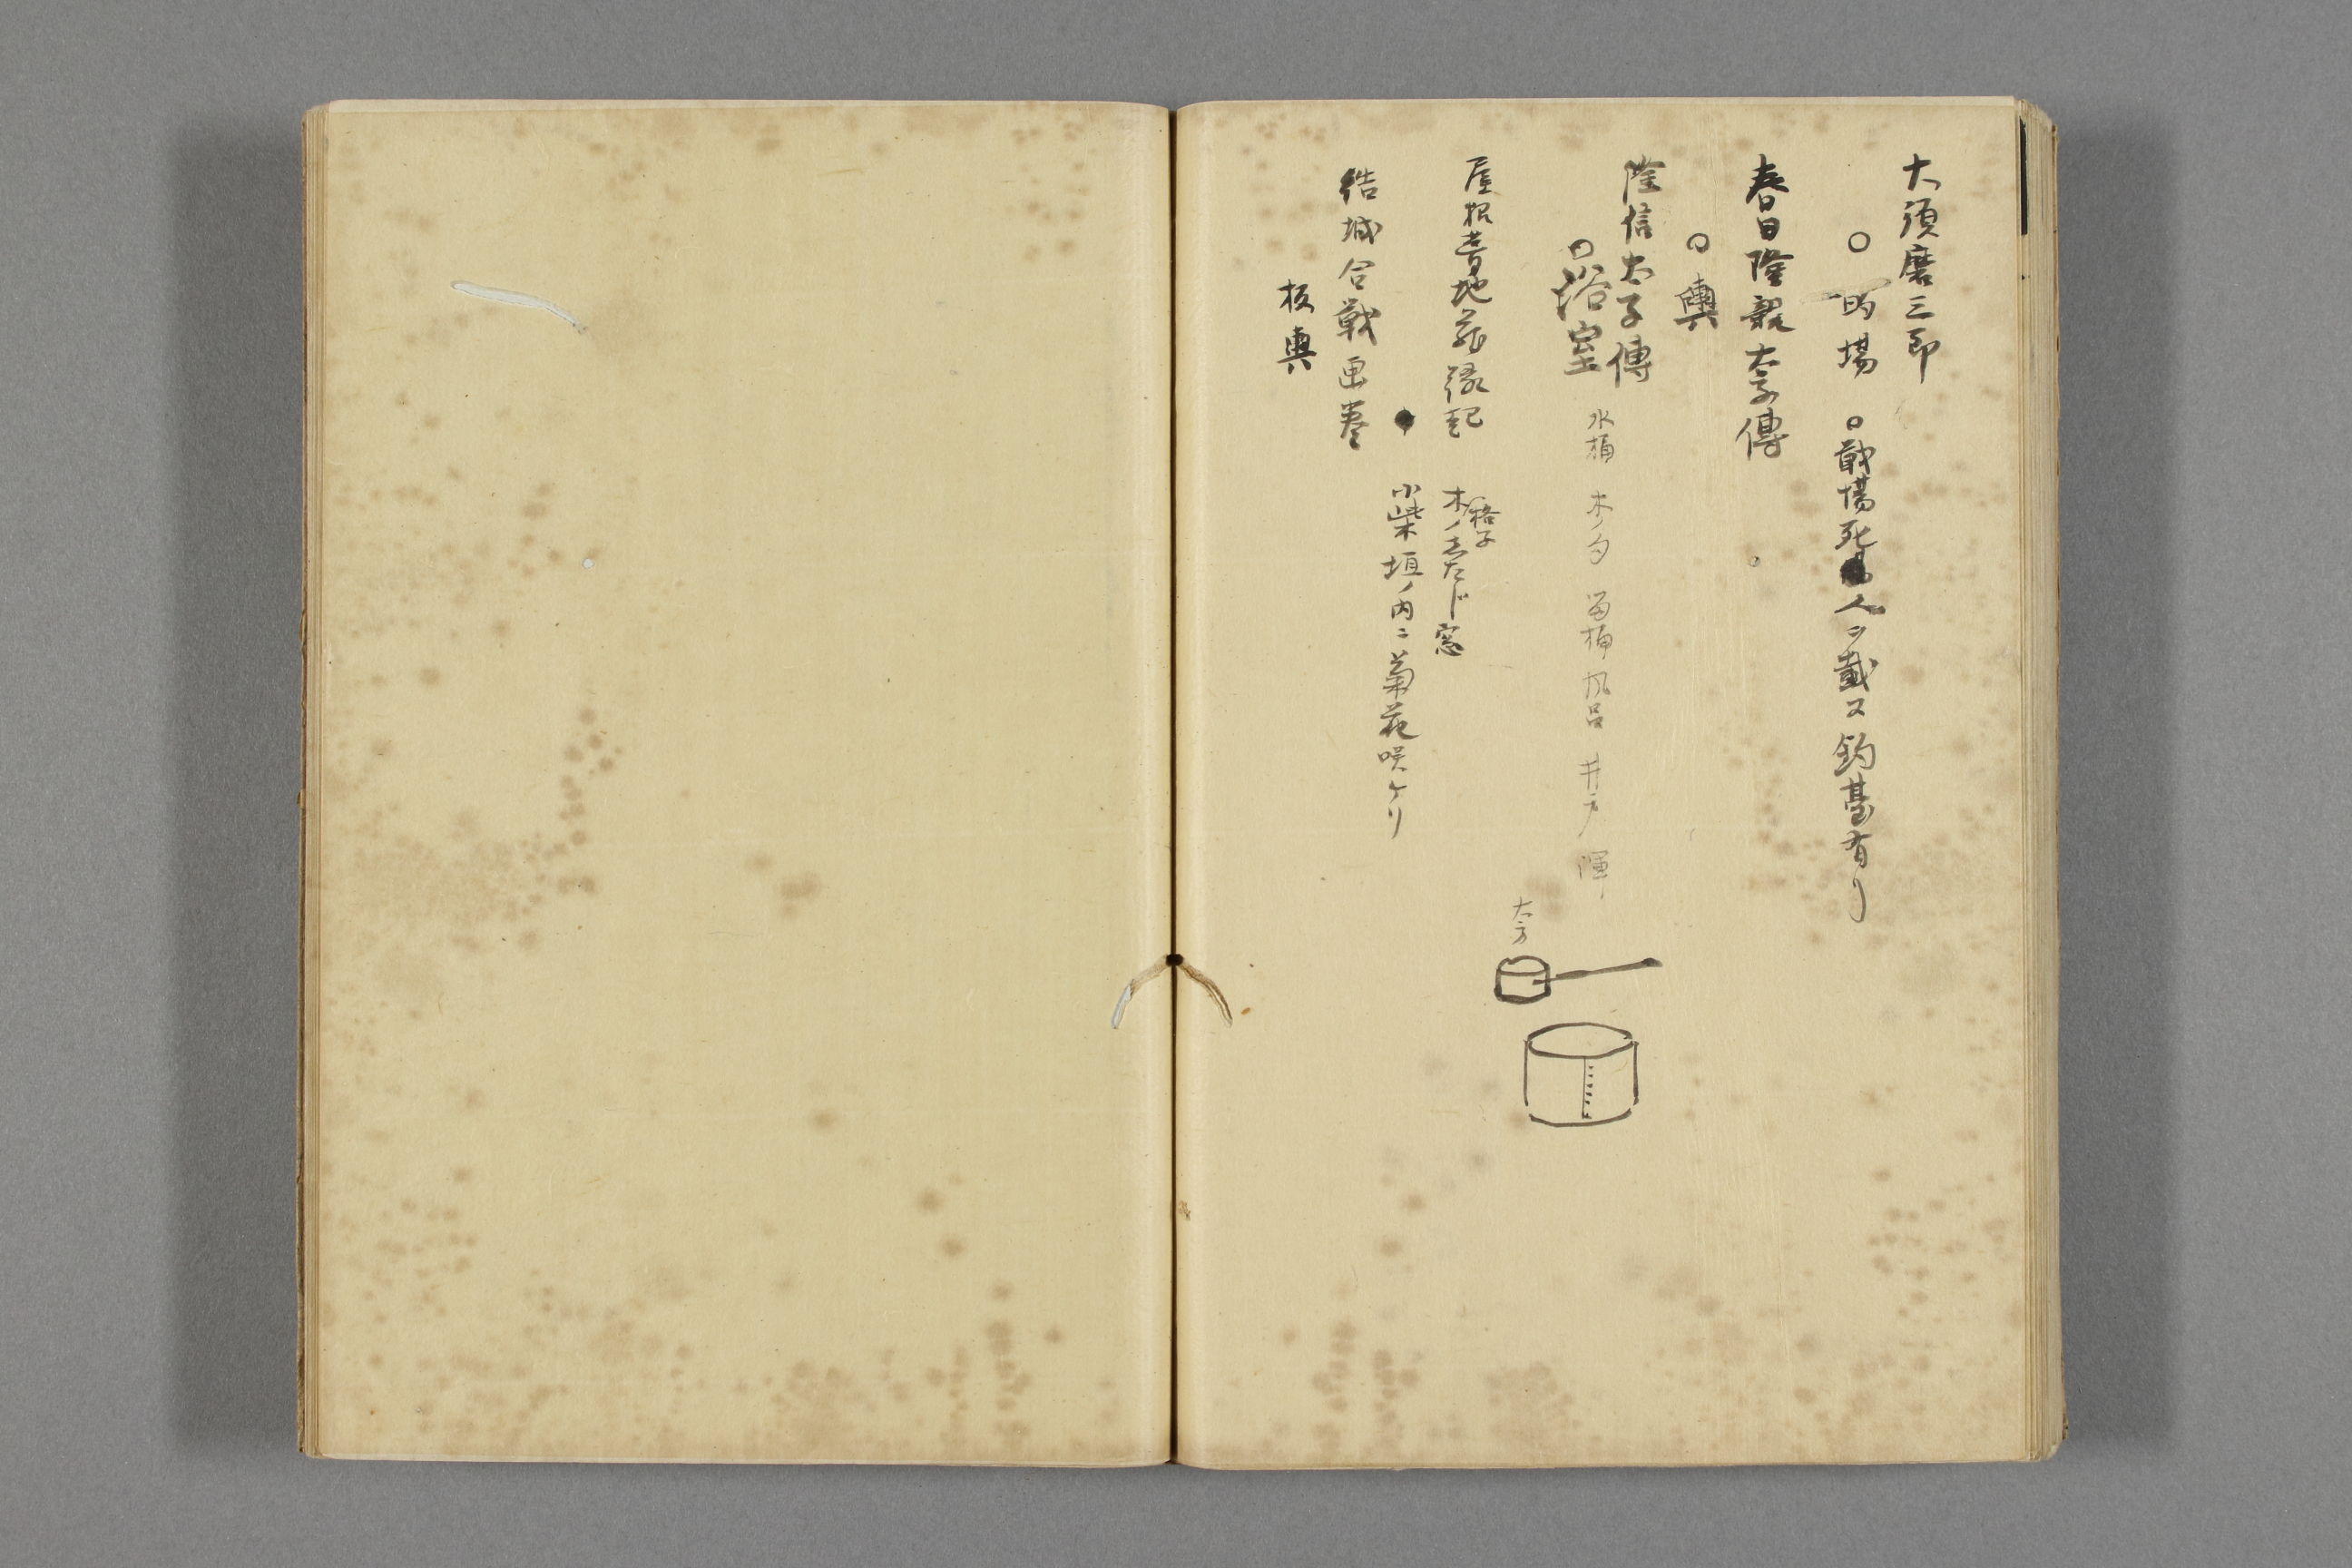 大須磨三郎
○的場 ○戦場死人ヲ載ス釣台有リ
春日隆親太子傳
○輿
隆信太子傳
○浴室 水桶 木勺 留桶 風呂 井戸 褌
大方
屋根葺地蔵縁起
格子
木ノ志たじ窓
小柴垣ノ内ニ菊花咲ケリ
結城合戦画巻
板輿